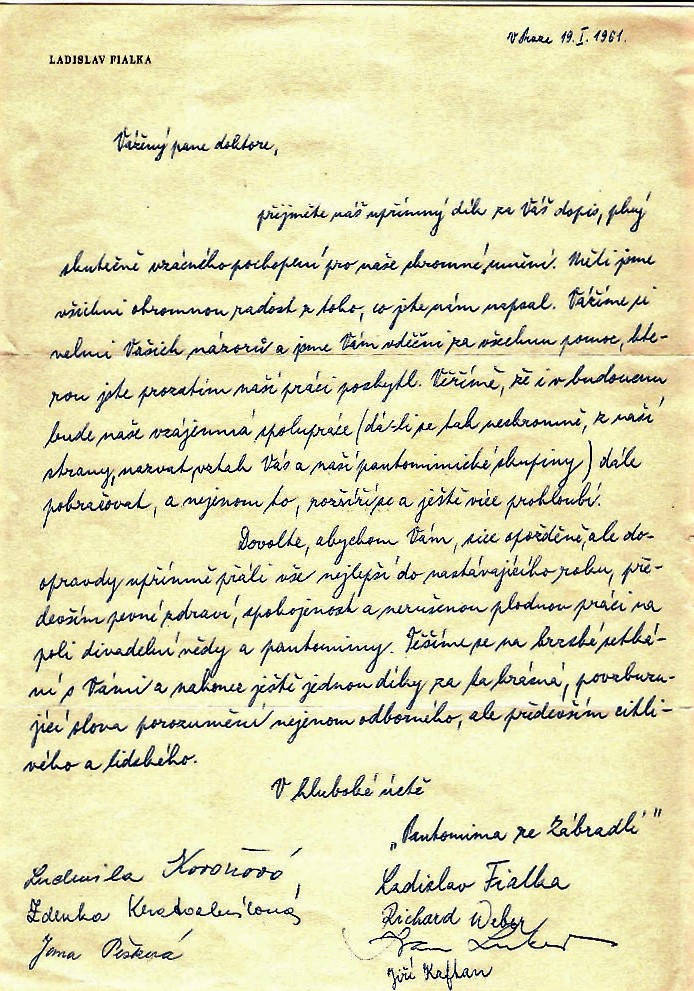 LADISLAV FIALKA
V Praze 19. I. 1961.
Vážený pane doktore,
přijměte náš upřímný dík za Váš dopis, plný
skutečně vzácného pochopení pro naše skromné umění. Měli jsme
všichni ohromnou radost z toho, co jste nám napsal. Vážíme si
velmi Vašich názorů a jsme Vám vděčni za všechnu pomoc, kte-
rou jste prozatím naší práci poskytl. Věříme, že i v budoucnu
bude naše vzájemná spolupráce (dá-li se tak neskromně, z naší
strany, nazvat vztah Vás a naší pantomimické skupiny) dále
pokračovat, a nejenom to, rozšíří se a ještě více prohloubí.
Dovolte, abychom Vám, sice opožděně, ale do-
opravdy upřímně přáli vše nejlepší do nastávajícího roku, pře-
devším pevné zdraví, spokojenost a nerušenou plodnou práci na
poli divadelní vědy a pantomimy. Těšíme se na brzské setká-
ní s Vámi a nakonec ještě jednou díky za ta krásná, povzbuzu-
jící slova porozumění nejenom odborného, ale především citli-
vého a lidského.
V hluboké úctě
„Pantomima ze Zábradlí"
Ludmila Kovářová
Ladislav Fialka
Zdenka Kratochvílová
Richard Weber
Jana Pešková
Jiří Kaftan